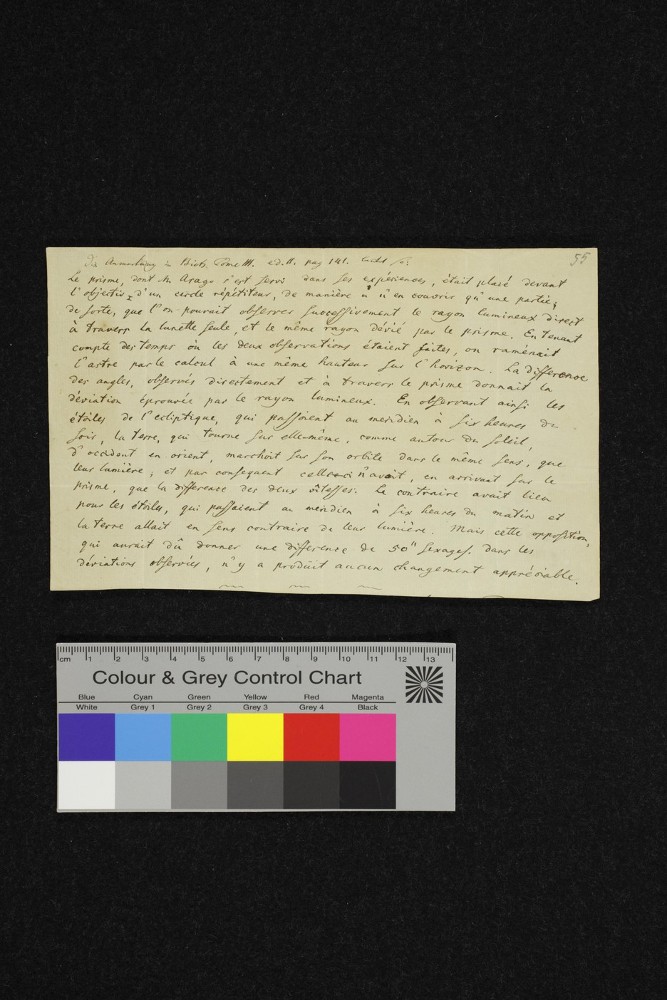 Die Anmerkung in Biots Tome III. ed. II. pag 141. lautet so:
55
Le prisme, dont M. Arago s'est servi dans ses expériences, était placé devant
l'objectif d'un cercle répétiteur, de manière à n'en couvrir qu'une partie,
de sorte, que l'on pouvait observer successivement le rayon lumineux direct
à travers la lunette seule, et le même rayon dévié par le prisme. En tenant
compte des temps où les deux observations étaient faites, on ramenait
l'astre par le calcul à une même hauteur sur l'horizon. La difference
des angles, observés directement et à travers le prisme donnait la
déviation éprouvée par le rayon lumineux. En observant ainsi les
étoiles de l'ecliptique, qui passoient au meridien à six heures du
soir, la terre, qui tourne sur elle-même, comme autour du soleil,
d'occident en orient, marchoit sur son orbite dans le même sens, que
leur lumière, et par consequent celle-ci n'avait, en arrivant sur le
prisme, que la difference des deux vîtesses. Le contraire avait lieu
pour les étoiles, qui passaient au méridien à six heures du matin et
la terre allait en sens contraire de leur lumière. Mais cette opposition,
qui aurait dû donner une difference de 50" sexages. dans les
déviations observées, n'y a produit aucun changement appréciable.
cm 1 2 3 4 5 6 7 8 9 10 11 12 13
Colour & Grey Control Chart
Blue Cyan Green Yellow Red Magenta
White Grey 1 Grey 2 Grey 3 Grey 4 Black